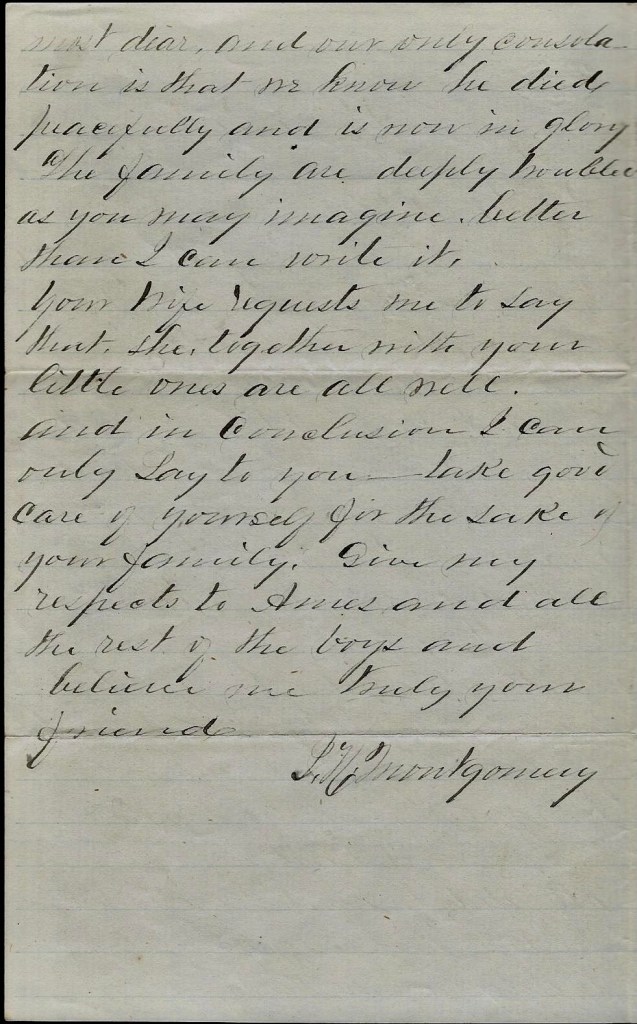 most dear, and our only consola-
tion is that we know he died,
peacefully and is now in glory
The family are deeply troubled
as you may imagine. better
than I can write it.
your wife requests me to say
that. she, together with your
little ones are all well.
and in Conclusion I can
only say to you — take good
care of yourself for the sake of
your family. Give my
respects to Amos and all
the rest of the boys and
believe me truly your
friend
L. H. Montgomery